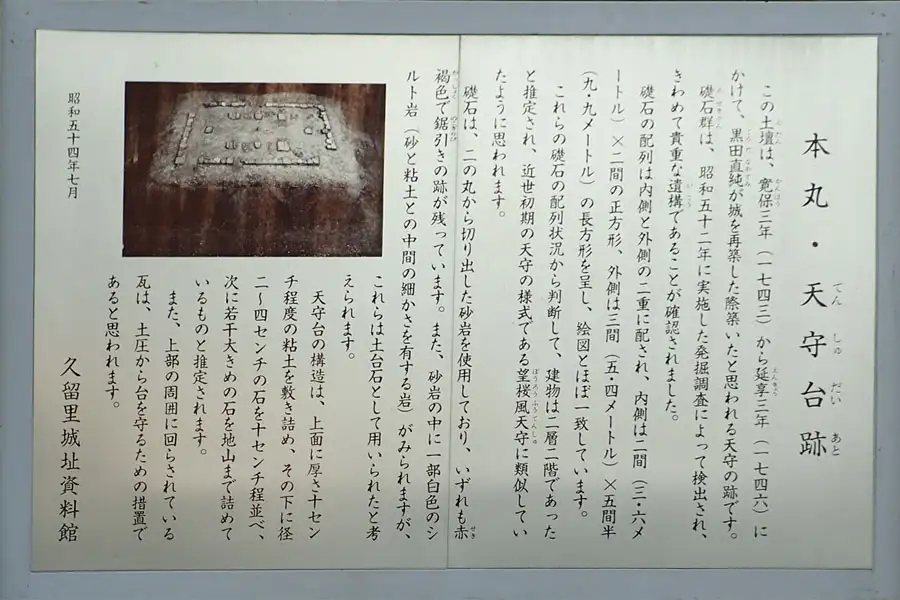 本丸・天守台跡
この土壇は、寛保三年（一七四三）から延享三年（一七四六）に
かけて、黒田直純が城を再築した際築いたと思われる天守の跡です。
礎石群は、昭和五十二年に実施した発掘調査によって検出され、
きわめて貴重な遺構であることが確認されました。
礎石の配列は内側と外側の二重に配され、内側は二間（三・六メ
ートル）×二間の正方形、外側は三間（五・四メートル）×五間半
（九・九メートル）の長方形を呈し、絵図とほぼ一致しています。
これらの礎石の配列状況から判断して、建物は二層二階であった
と推定され、近世初期の天守の様式である望桜風天守に類似してい
たように思われます。
礎石は、二の丸から切り出した砂岩を使用しており、いずれも赤
褐色で鋸引きの跡が残っています。また、砂岩の中に一部白色のシ
ルト岩（砂と粘土との中間の細かさを有する岩）がみられますが、
これらは土台石として用いられたと考
えられます。
天守台の構造は、上面に厚さ十セン
チ程度の粘土を敷き詰め、その下に径
二〜四センチの石を十センチ程並べ、
次に若干大きめの石を地山まで詰めて
いるものと推定されます。
また、上部の周囲に回らされている
瓦は、土圧から台を守るための措置で
あると思われます。
昭和五十四年七月
久留里城址資料館